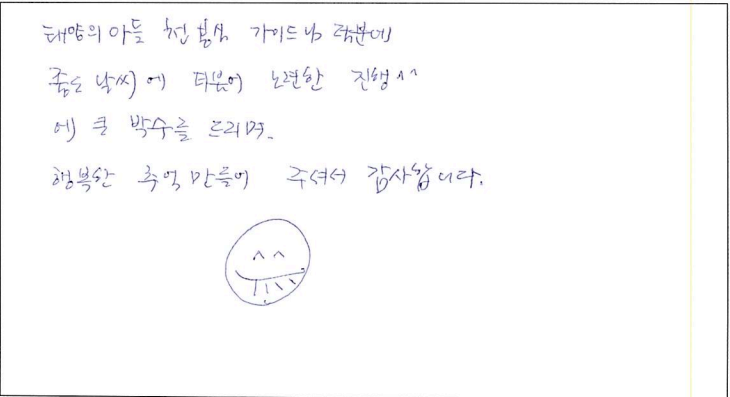 태양의 아들 천 봉삼 가이드님 덕분에
좋은 날씨에 더불어 노련한 진행^^
에 큰 박수를 드리며.
행복한 추억 만들어 주셔서 감사합니다.